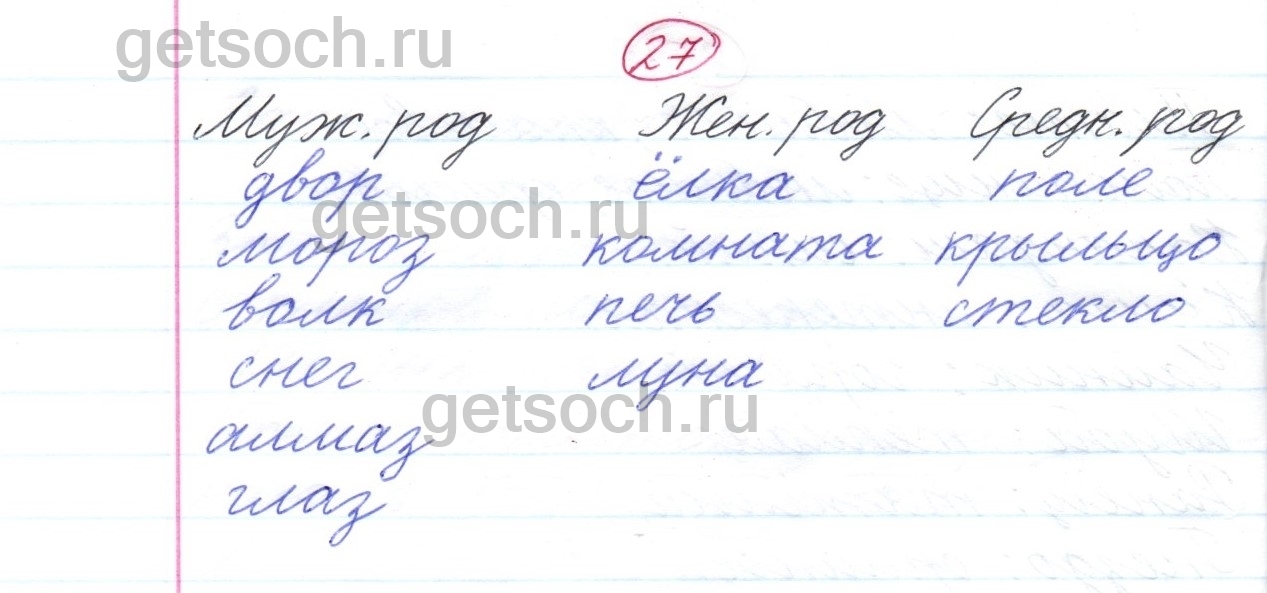 getsoch.ru
27
Муж. род Жен. род Средн. род
двор ёлка поле
getsoch.ru
мороз комната крыльцо
волк печь стекло
снег луна
getsoch.ru
алмаз
глаз